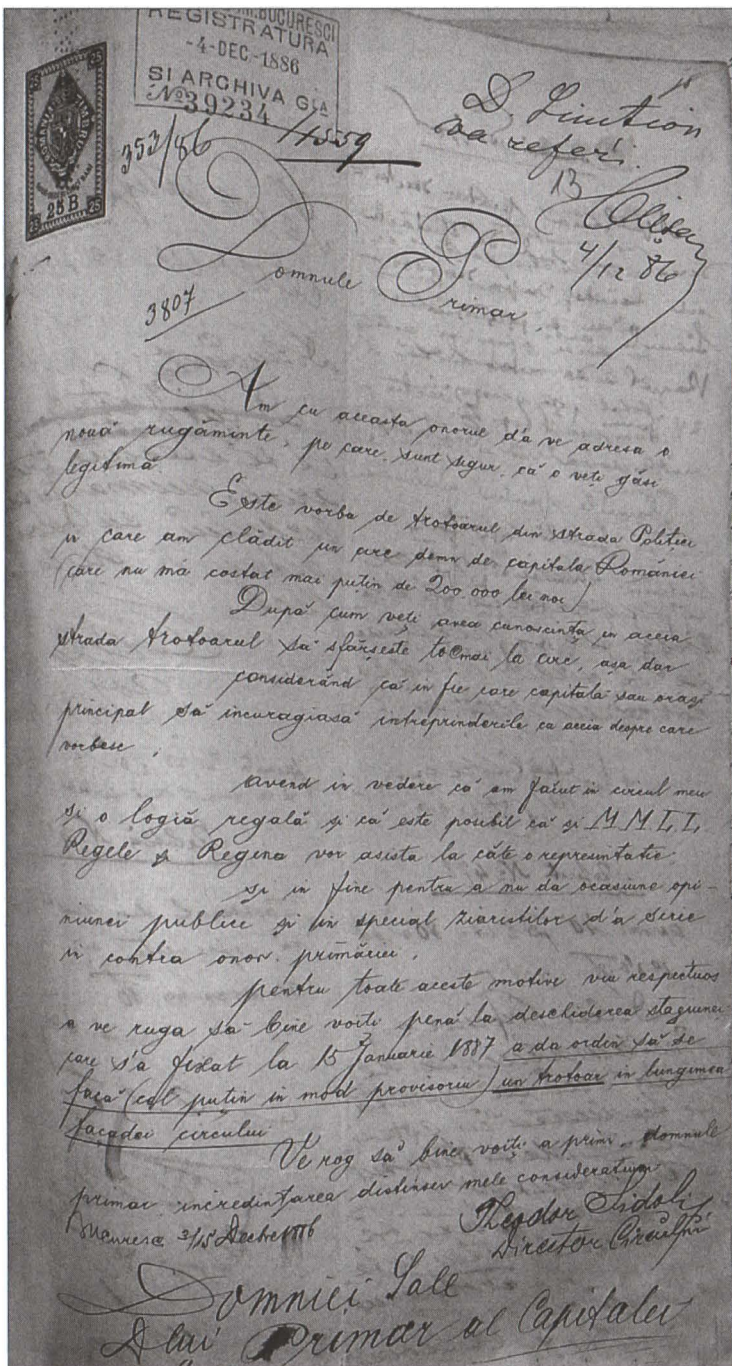 PRIM. BUCURESCI
REGISTRATURA
-4-DEC-1886
SI ARCHIVA GLA
No 39234
25 25
25 B
25
353/86
1559
D. Linution
va referi
13
4/12 86
Domnule Primar,
3807
Am cu aceasta onorul d'a ve adresa o
nouă rugăminte, pe care, sunt sigur, că o veți găsi
legitimă.
Este vorba de trotoarul din strada Poliției
in care am clădit un circ demn de capitala României
(care nu mă costat mai puțin de 200.000 lei noi)
După cum veți avea cunoscința in aceia
strada trotoarul să sfărșește tocmai la circ, așa dar
considerând că in fie care capitală sau oraș
principal să incuragiasă intreprinderile ca aceia despre care
vorbesc,
avend in vedere că am făcut in circul meu
și o logiă regală și că este posibil că și M M L L
Regele și Regina vor asista la căte o representație,
și in fine pentru a nu da ocasiune opi-
niunei publice și in special ziaristilor d'a scrie
in contra onor. primăriei,
pentru toate aceste motive viu respectuos
a ve ruga să bine voiți penă la deschiderea stagiunei
care s'a fixat la 15 Januarie 1887 a da ordin să se
facă (cel puțin in mod provisoriu) un trotoar in lungimea
façadei circului
Ve rog să bine voiți a primi, domnule
primar, incredințarea distinsei mele considerațiuni
Bucuresci 3/15 Decbre 1886
Theodor Sidoli
Director Circului
Domniei Sale
D lui Primar al Capitalei